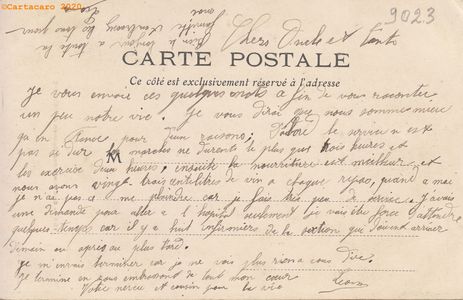 ©Cartacaro 2020
9023
Chers Oncle et Tante
CARTE POSTALE
Ce côté est exclusivement réservé à l'adresse
Je vous envoie ces quelques mots a fin de vous raconter
un peu notre vie. Je vous dirai que nous sommes mieu
qu'en France pour deux raisons; D'abord le service n'est
pas si dur les marches ne durent le plus que trois heures et
les exercice deux heures, ensuite la nourriture est meilleur et
nous avons vingt trois centilitres de vin a chaque repas, quand a moi
je n'ai pas a me plaindre car je fais très peu de service. J'avais
une demande pour aller a l'hopital seulement je vais être forcé d'attendre
quelques temps car il y a huit infirmiers de la section qui doivent arriver
demain ou après au plus tard.
je m'envais terminer car je ne vois plus rien a vous dire.
Je termine en vous embrassant de tout mon cœur
Votre neveu et cousin pour la vie
Léon